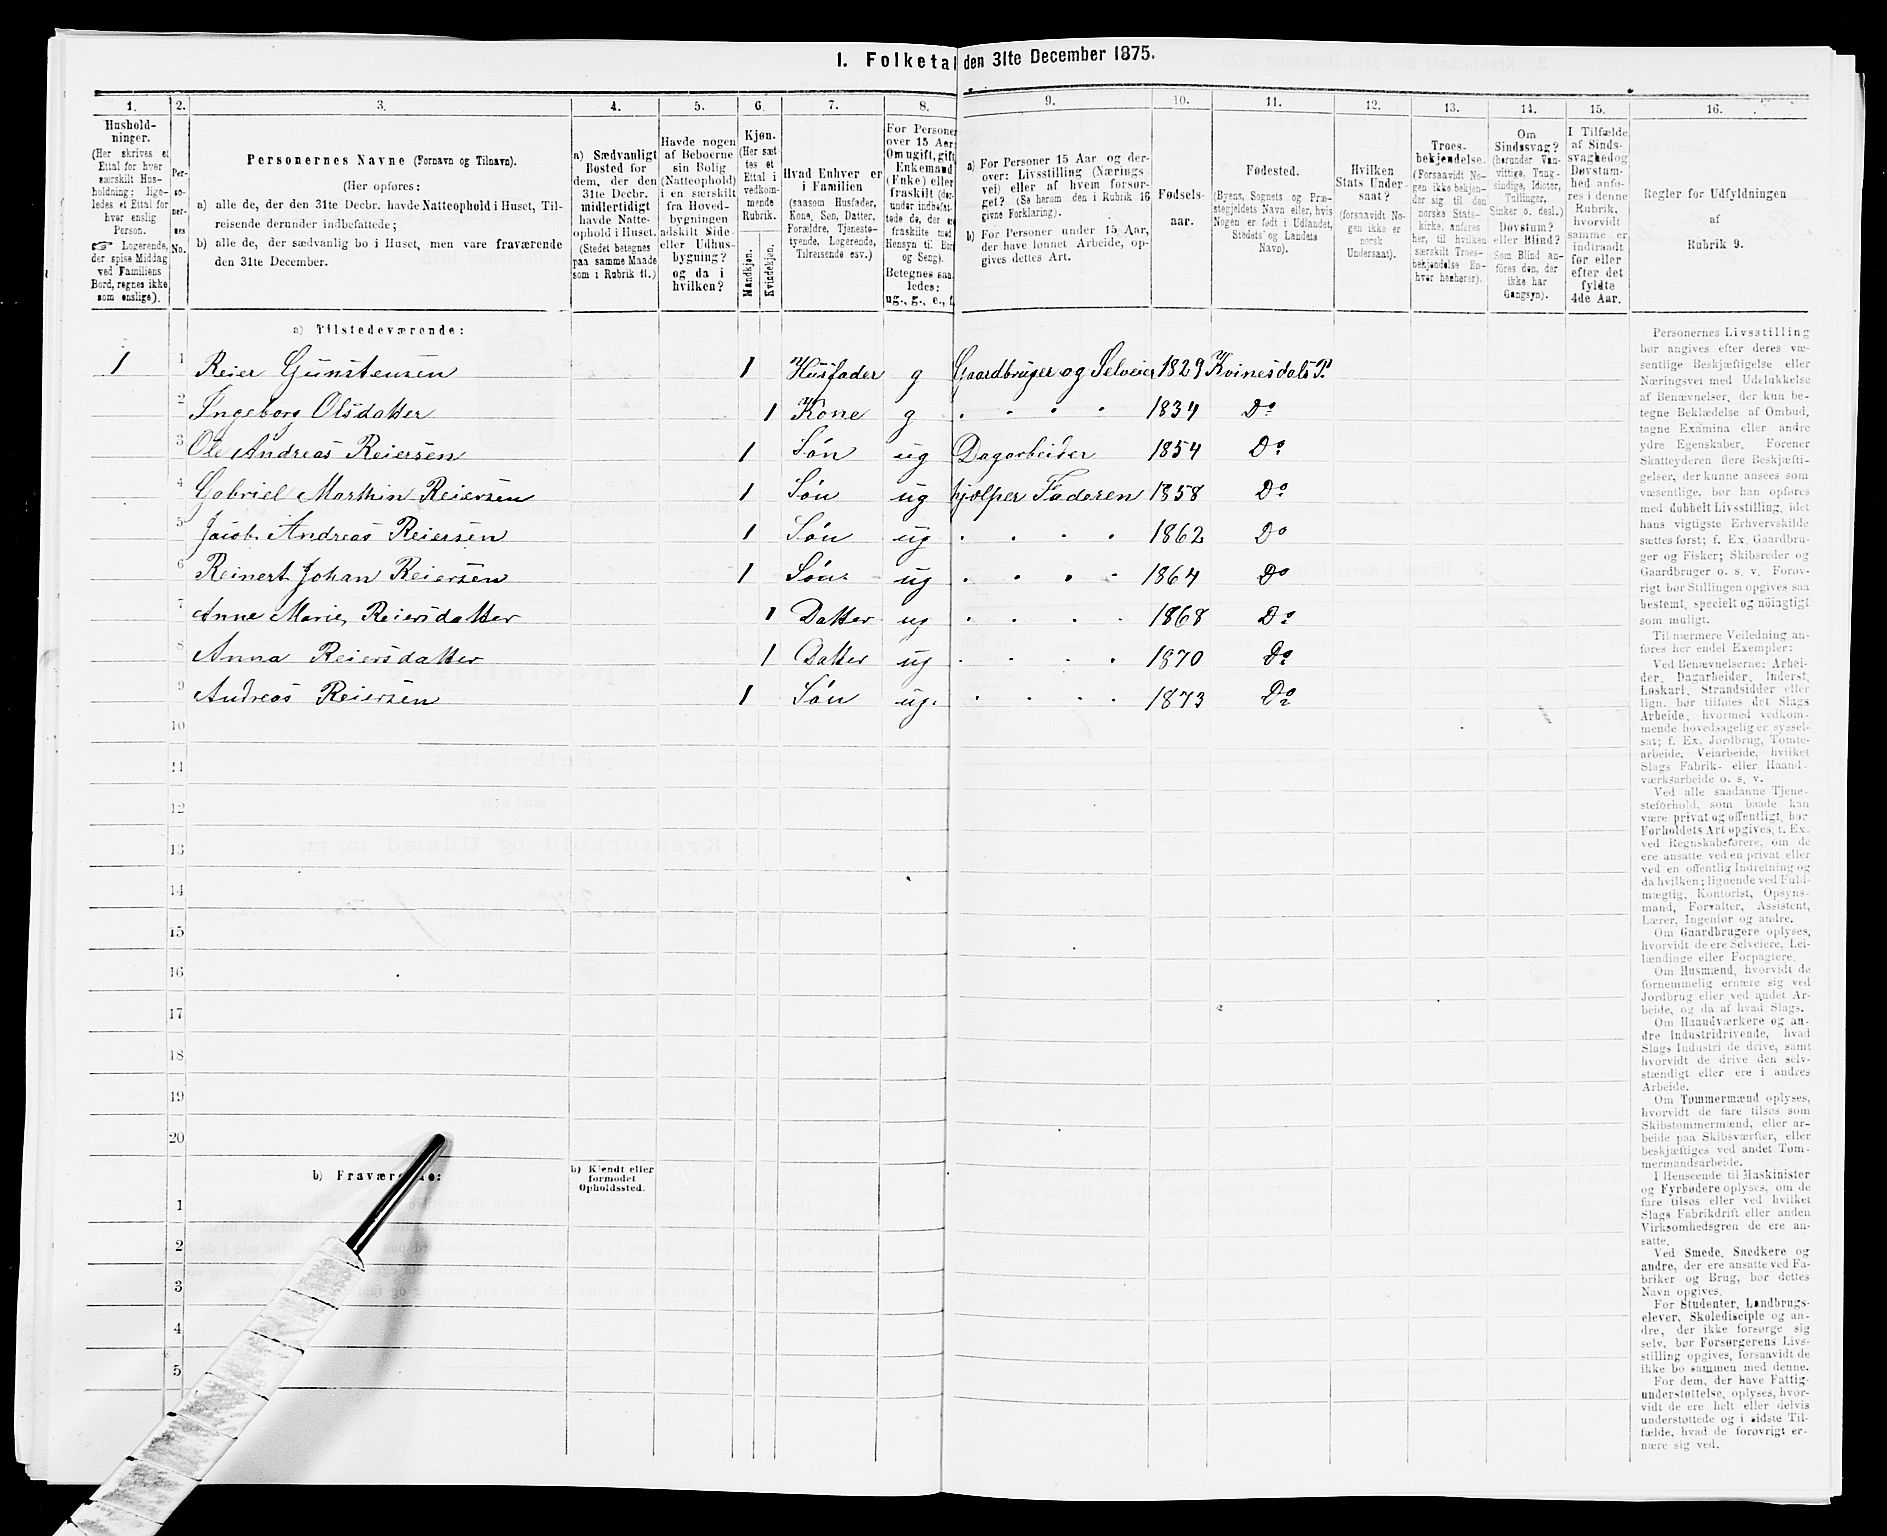 1. Folketal den 31te December 1875.
1. 2. 3. 4. 5. 6. 7. 8. 9. 10. 11. 12. 13. 14. 15. 16.
Hushold-
ninger.
(Her skrives et
Ettal for hver
særskilt Hus-
holdning; lige-
ledes et Ettal for
hver enslig
Person.
☞ Logerende,
der spise Middag
ved Familiens
Bord, regnes ikke
som enslige).
Per-
so-
ner-
nes
No.
Personernes Navne (Fornavn og Tilnavn).
(Her opføres:
a) alle de, der den 31te Decbr. havde Natteophold i Huset, Til-
reisende derunder indbefattede;
b) alle de, der sædvanlig bo i Huset, men vare fraværende
den 31te December.
a) Sædvanligt
Bosted for
dem, der den
31te Decbr.
midlertidigt
havde Natte-
ophold i Huset.
(Stedet betegnes
paa samme Maade
som i Rubrik 11.)
Havde nogen
af Beboerne
sin Bolig
(Natteophold)
i en særskilt
fra Hoved-
bygningen
adskilt Side-
eller Udhus-
bygning?
og da i
hvilken?
Kjøn.
(Her sæt-
tes et
Ettal i
vedkom-
mende
Rubrik.
Mandkjøn.
Kvindekjøn.
Hvad Enhver er
i Familien
(saasom Husfader,
Kone, Søn, Datter,
Forældre, Tjeneste-
tyende, Logerende,
Tilreisende osv.)
For Personer
over 15 Aar:
Om ugift, gift,
Enkemand
(Enke) eller
fraskilt
Hensyn til Bord
og Seng).
Betegnes saa-
ledes:
ug., g., e., f.
a) For Personer 15 Aar og der-
over: Livsstilling (Nærings
vei) eller af hvem forsør-
get? (Se herom den i Rubrik 16
givne Forklaring).
b) For Personer under 15 Aar,
der have lønnet Arbeide, op-
gives dettes Art.
Fødsels-
aar.
Fødested.
(Byens, Sognets og Præ-
stegjeldets Navn eller, hvis
Nogen er født i Udlandet,
Stedets og Landets
Navn).
Hvilken
Stats Under-
saat?
(forsaavidt No-
gen ikke er
norsk
Undersaat).
Troes-
bekjendelse.
(Forsaavidt No-
gen ikke bekjen-
der sig til den
norske Stats-
kirke, anføres
her, til hvilken
særskilt Troes-
bekjendelse En-
hver henhører).
Om
Sindssvag?
(herunder Van-
vittige, Tung-
sindige, Idioter,
Tullinger,
Sinker o. desl.)
Døvstum?
eller Blind?
(Som Blind an-
føres den, der
ikke har
Gangsyn).
I Tilfælde
af Sinds-
svaghed og
Døvstum-
hed anfø-
res i denne
Rubrik,
hvorvidt
samme er
indtraadt
før eller
efter det
fyldte
4de Aar.
Regler for Udfyldningen
af
Rubrik 9.
a) Tilstedeværende:
1 1 Reier Gunstensen 1 Husfader g Gaardbruger og Selveier 1829 Kvinesdals P.
2 Ingeborg Olsdatter 1 Kone g " " " " 1834 Do
3 Ole Andreas Reiersen 1 Søn ug Dagarbeider 1854 Do
4 Gabriel Marthin Reiersen 1 Søn ug hjælper Faderen 1858 Do
5 Jacob Andreas Reiersen 1 Søn ug " " " " 1862 Do
6 Reinert Johan Reiersen 1 Søn ug " " " " 1864 Do
7 Anne Marie Reiersdatter 1 Datter ug " " " " 1868 Do
8 Anna Reiersdatter 1 Datter ug " " " " 1870 Do
9 Andreas Reiersen 1 Søn ug. " " " " 1873 Do
10
11
12
13
14
15
16
17
18
19
20
b) Fravære de:
b) Kjendt eller
formodet
Opholdssted.
1
2
3
4
5
Personernes Livsstilling
bør angives efter deres væ-
sentlige Beskjæftigelse eller
Næringsvei med Udelukkelse
af Benævnelser, der kun be-
tegne Beklædelse af Ombud,
tagne Examina eller andre
ydre Egenskaber. Forener
Skatteyderen flere Beskjæfti-
gelser, der kunne ansees som
væsentlige, bør han opføres
med dobbelt Livsstilling, idet
hans vigtigste Erhvervskilde
sættes først; f. Ex. Gaardbru-
ger og Fisker; Skibsreder og
Gaardbruger o. s. v. Forøv-
rigt bør Stillingen opgives saa
bestemt, specielt og nøiagtigt
som muligt.
Til nærmere Veiledning an-
føres her endel Exempler:
Ved Benævnelserne: Arbei-
der, Dagarbeider, Inderst,
Løskarl, Strandsidder eller
lign. bør tilføies det Slags
Arbeide, hvormed vedkom-
mende hovedsagelig er syssel-
sat; f. Ex. Jordbrug, Tomte-
arbeide, Veiarbeide, hvilket
Slags Fabrik- eller Haand-
værksarbeide o. s. v.
Ved alle saadanne Tjene-
steforhold, som baade kan
være privat og offentligt, bør
Forholdets Art opgives, f. Ex.
ved Regnskabsførere, om de
ere ansatte ved en privat eller
ved en offentlig Indretning og
da hvilken; lignende ved Fuld-
mægtig, Kontorist, Opsyns-
mand, Forvalter, Assistent,
Lærer, Ingeniør og andre.
Om Gaardbrugere oplyses,
hvorvidt de ere Selveiere, Lei-
lændinge eller Forpagtere.
Om Husmænd, hvorvidt de
fornemmelig ernære sig ved
Jordbrug eller ved andet Ar-
beide, og da af hvad Slags.
Om Haandværkere og an-
dre Industridrivende, hvad
Slags Industri de drive, samt
hvorvidt de drive den selv-
stændigt eller ere i andres
Arbeide.
Om Tømmermænd oplyses,
hvorvidt de fare tilsøs som
Skibstømmermænd, eller ar-
beide paa Skibsværfter, eller
beskjæftiges ved andet Tøm-
mermandsarbeide.
I Henseende til Maskinister
og Fyrbødere oplyses, om de
fare tilsøs eller ved hvilket
Slags Fabrikdrift eller anden
Virksomhedsgren de ere an-
satte.
Ved Smede, Snedkere og
andre, der ere ansatte ved Fa-
briker og Brug, bør dettes
Navn opgives.
For Studenter, Landbrugs-
elever, Skoledisciple og an-
dre, der ikke forsørge sig
selv, bør Forsørgerens Livs-
stilling opgives, forsaavidt de
ikke bo sammen med denne.
For dem, der have Fattig-
understøttelse, oplyses, hvor-
vidt de ere helt eller delvis
understøttede og i sidste Til-
fælde, hvad de forøvrigt er-
nære sig ved.